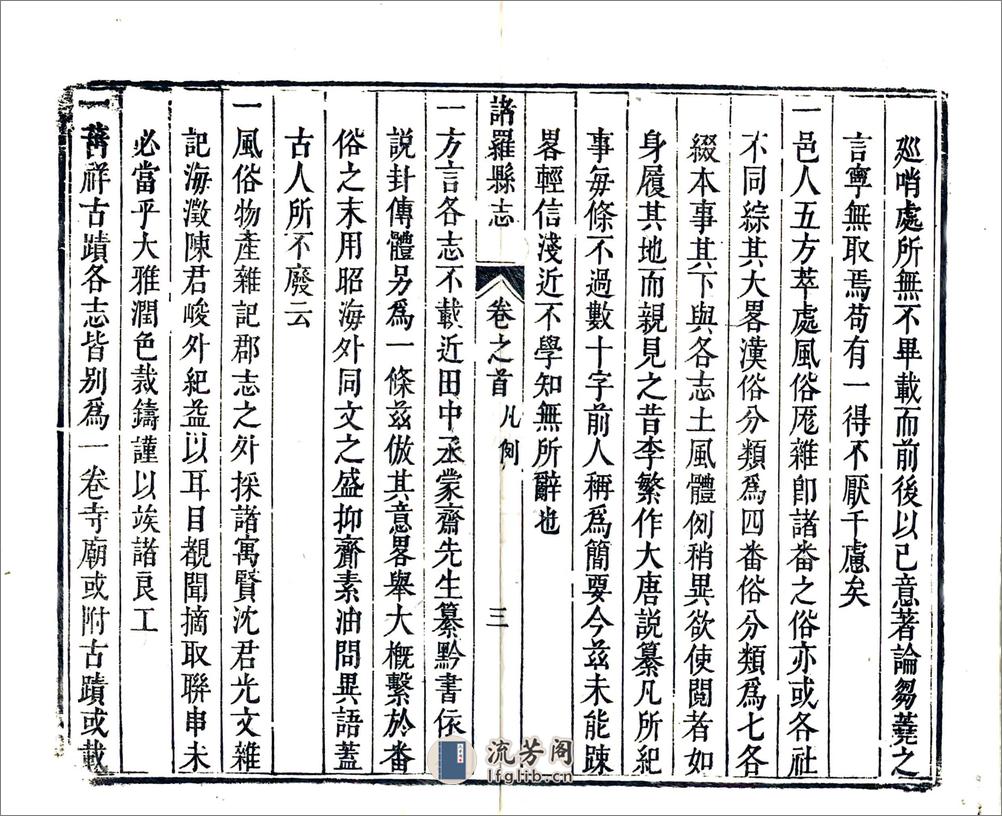 廵哨處所無不畢載而前後以己意著論芻蕘之
言寧無取焉苟有一得不厭千慮矣
一邑人五方萃處風俗厖雜卽諸番之俗亦或各社
不同綜其大畧漢俗分類爲四番俗分類爲七各
綴本事其下與各志土風體例稍異欲使閱者如
身履其地而親見之昔李繁作大唐說纂凡所紀
事每條不過數十字前人稱爲簡要今茲未能踈
畧輕信淺近不學知無所辭也
諸羅縣志 卷之首 凡例 三
一方言各志不載近田中丞蒙齋先生纂黔書依
說卦傳體另爲一條茲倣其意畧舉大槪繫於番
俗之末用昭海外同文之盛抑齎素油問異語蓋
古人所不廢云
一風俗物產雜記郡志之外採諸寓賢沈君光文雜
記海澂陳君峻外紀益以耳目覩聞摘取聯串未
必當乎大雅潤色裁鑄謹以竢諸良工
一菑祥古蹟各志皆别爲一卷寺廟或附古蹟或載
流芳阁
lfglib.cn